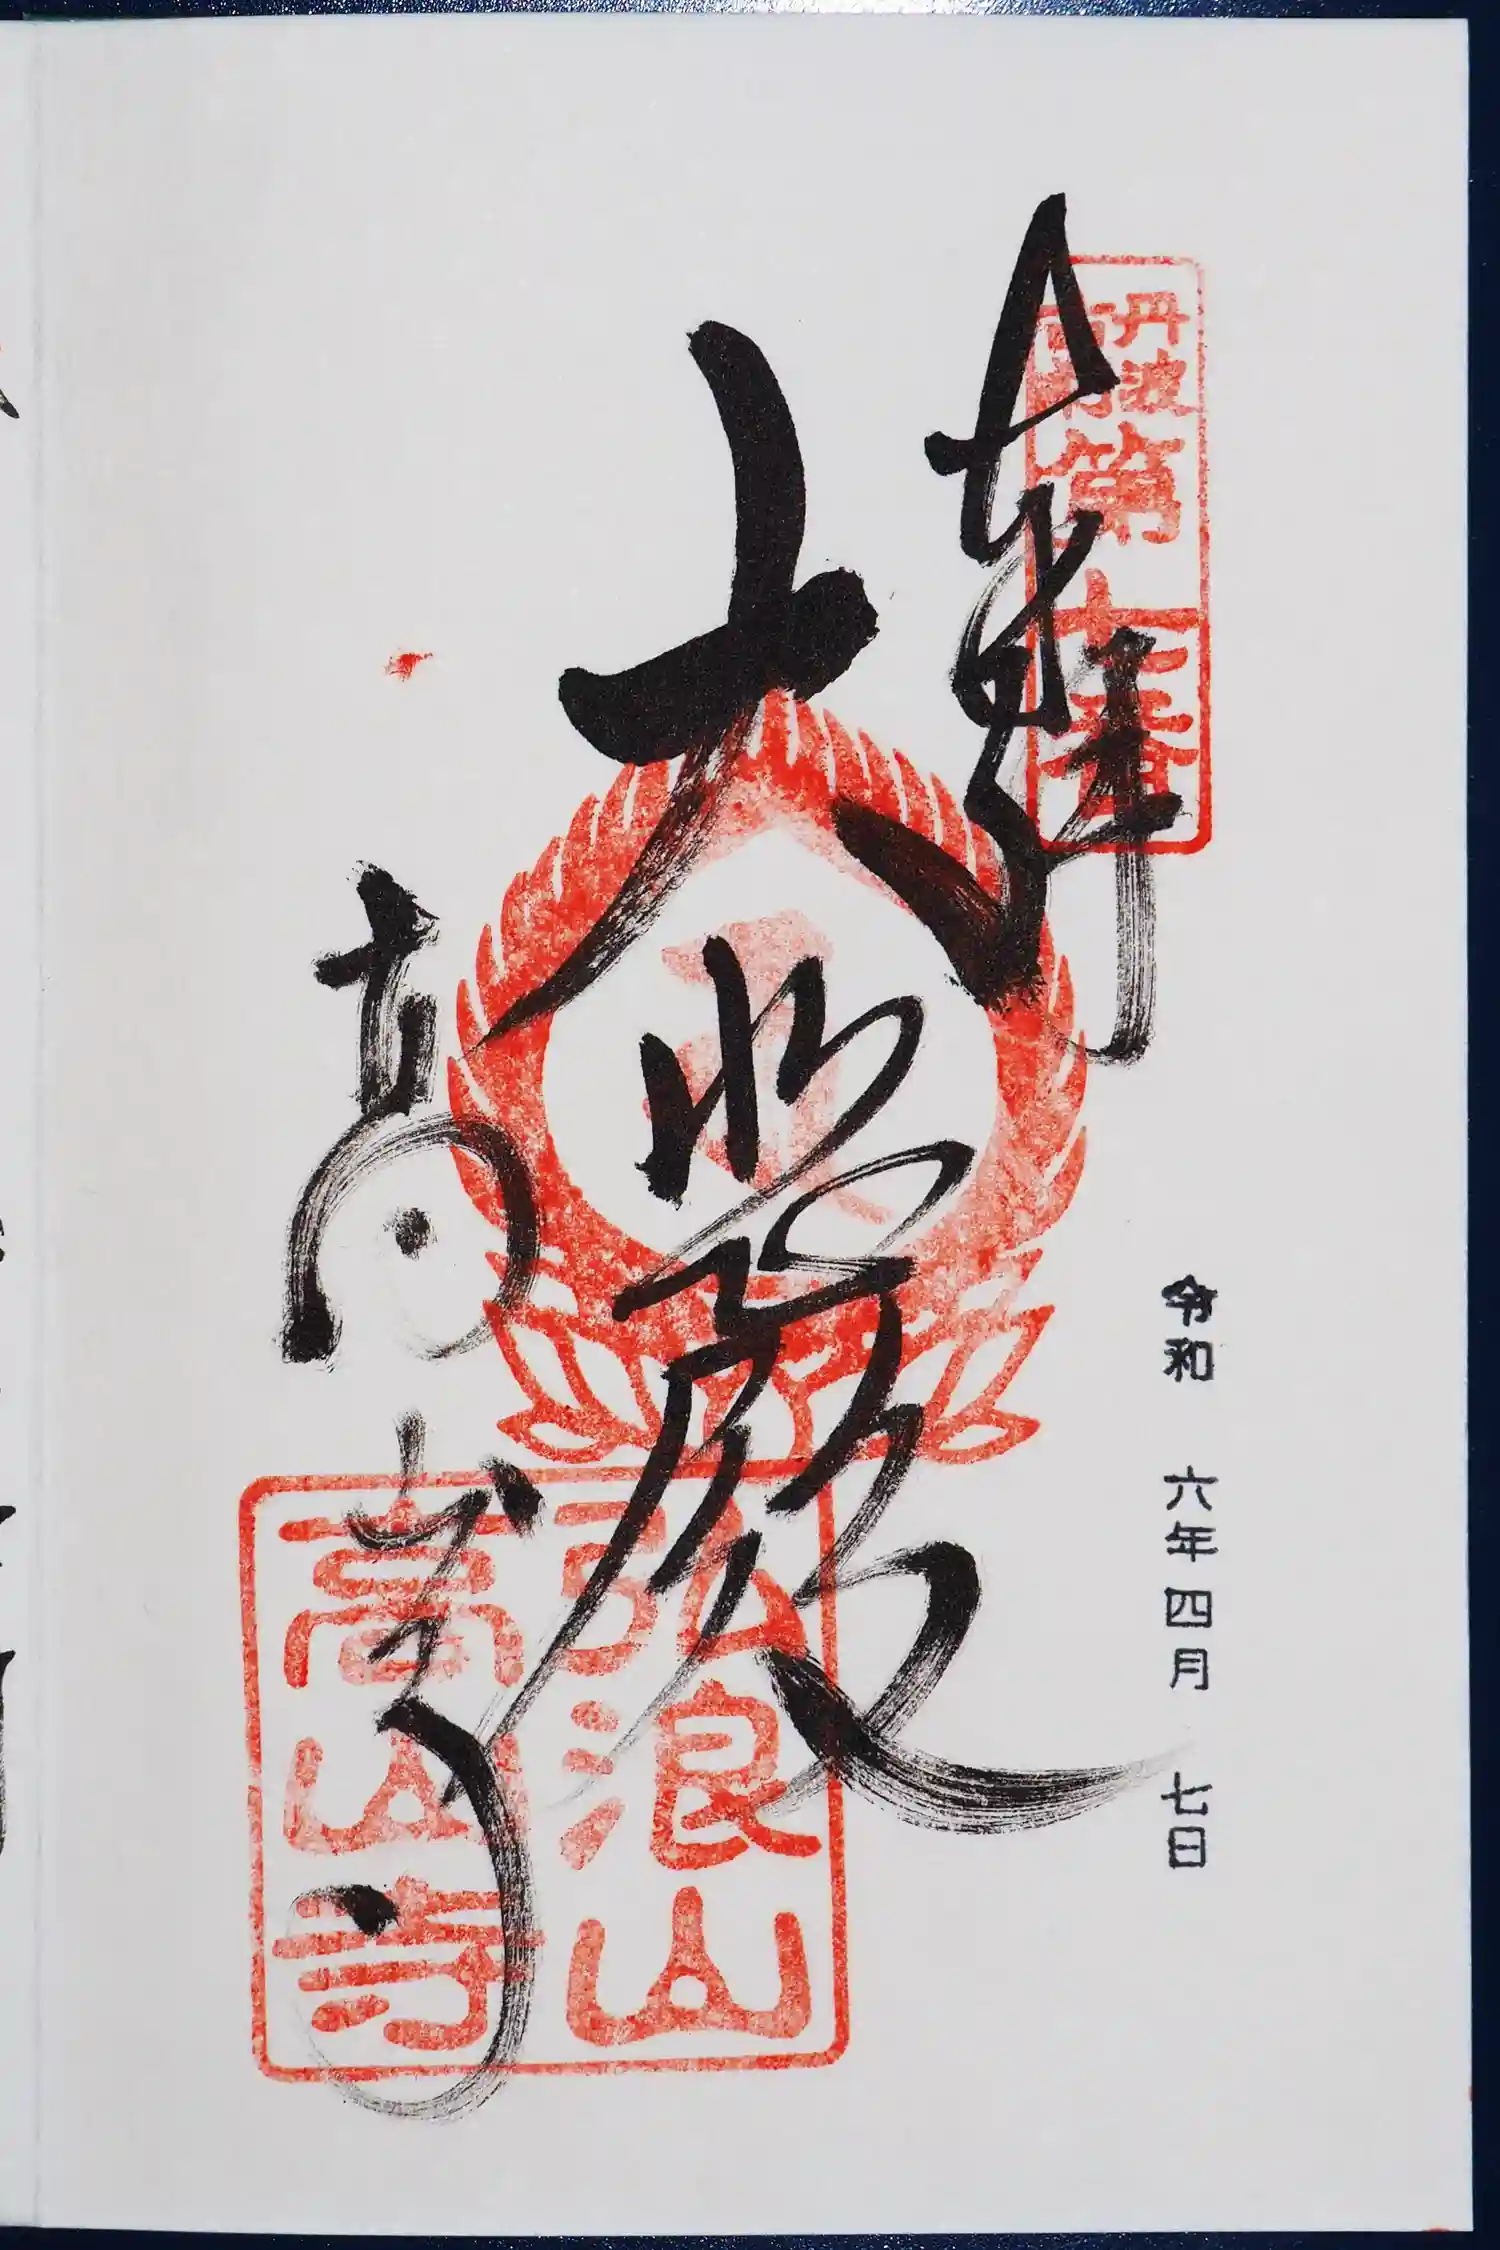 奉拝
丹波
大悲殿
高山寺
弘浪山
高山寺
令和 六年四月 七日